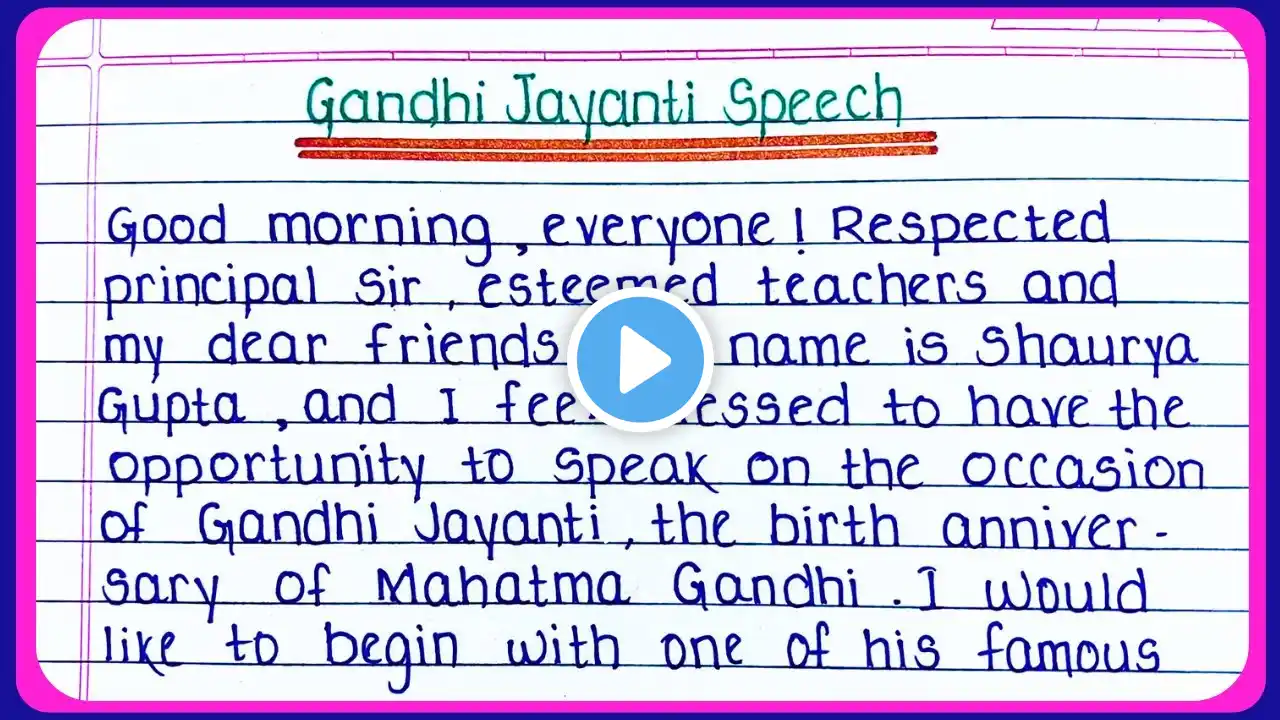 Gandhi Jayanti Speech
Good morning, everyone! Respected
principal Sir, esteemed teachers and
my dear friends name is Shaurya
Gupta, and I to have the
opportunity to speak on the occasion
of Gandhi Jayanti, the birth anniver-
sary of Mahatma Gandhi. I would
like to begin with one of his famous